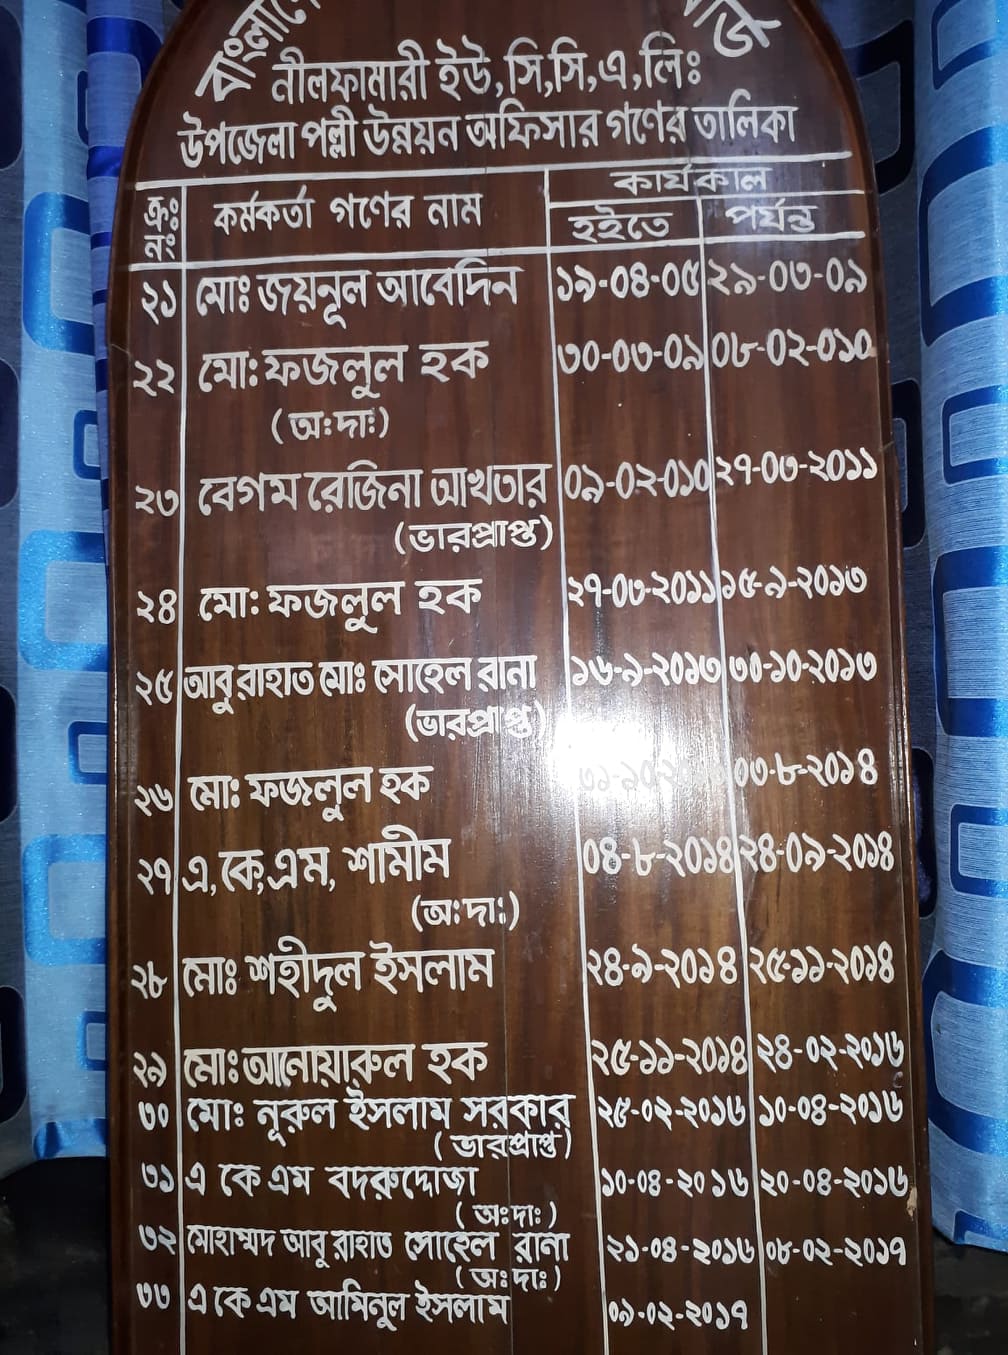 নীলফামারী ইউ,সি,সি,এ,লিঃ
উপজেলা পল্লী উন্নয়ন অফিসার গণের তালিকা
ক্রঃ নং কর্মকর্তা গণের নাম কার্যকাল
হইতে পর্যন্ত
২১ মোঃ জয়নূল আবেদিন ১৯-০৪-০৫ ২৯-০৩-০৯
২২ মো: ফজলুল হক ৩০-০৩-০৯ ০৮-০২-০১০
(অ:দা:)
২৩ বেগম রেজিনা আখতার ০৯-০২-০১০ ২৭-০৩-২০১১
(ভারপ্রাপ্ত)
২৪ মো: ফজলুল হক ২৭-০৩-২০১১ ১৫-৯-২০১৩
২৫ আবু রাহাত মোঃ সোহেল রানা ১৬-৯-২০১৩ ৩০-১০-২০১৩
(ভারপ্রাপ্ত)
২৬ মোঃ ফজলুল হক ০৩-৮-২০১৪
২৭ এ,কে,এম, শামীম ০৪-৮-২০১৪ ২৪-০৯-২০১৪
(অ:দা:)
২৮ মোঃ শহীদুল ইসলাম ২৪-৯-২০১৪ ২৫-১১-২০১৪
২৯ মোঃ আনোয়ারুল হক ২৫-১১-২০১৪ ২৪-০২-২০১৬
৩০ মোঃ নূরুল ইসলাম সরকার ২৫-০২-২০১৬ ১০-০৪-২০১৬
(ভারপ্রাপ্ত)
৩১ এ কে এম বদরুদ্দোজা ১০-০৪-২০১৬ ২০-০৪-২০১৬
(অঃদাঃ)
৩২ মোহাম্মদ আবু রাহাত সোহেল রানা ২১-০৪-২০১৬ ০৮-০২-২০১৭
(অঃদাঃ)
৩৩ এ কে এম আমিনুল ইসলাম ০৯-০২-২০১৭